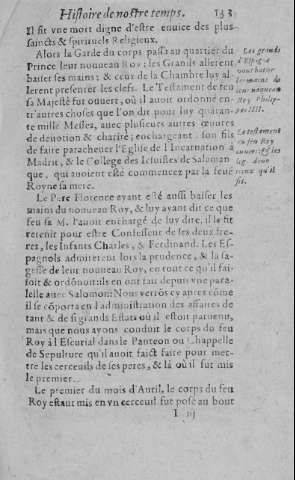 Histoire de nostre temps. 133
Il fit vne mort digne d'estre enuiée des plus
saincts & spirituels Religieux.
Alors la Garde du corps passa au quartier du
Prince leur nouueau Roy: les Grands allerent
baiser ses mains; & ceux de la Chambre luy al-
lerent presenter les clefs. Le Testament de feu
sa Majesté fut ouuert, où il auoit ordonné en-
tr'autres choses que l'on dit pour luy quaran-
te mille Messes, auec plusieurs autres œuures
de deuotion & charité; enchargeant son fils
de faire paracheuer l'Eglise de l'Incarnation à
Madrit, & le College des Iesuistes de Salaman-
que, qui auoient esté commencez par la feuë
Royne sa mere.
Les grands
d'Espagne
vont baiser
les mains du
leur nouueau
Roy Philip-
pe IIII.
Le testament
du feu Roy
ouuert, &
leg deux
mains qu'il
fit.
Le Pere Florence ayant esté aussi baiser les
mains du nouueau Roy, & luy ayant dit ce que
feu sa M. l'auoit enchargé de luy dire, il le fit
retenir pour estre Confesseur de ses deux fre-
res, les Infants Charles, & Ferdinand. Les Es-
pagnols admirerent lors la prudence, & la sa-
gesse de leur nouueau Roy, en tout ce qu'il fai-
soit & ordonnoit: ils en ont fait depuis vne para-
lelle auec Salomon: Nous verrōs cy apres cōme
il se cōporta en l'administration des affaires de
tant & de si grands Estats où il estoit paruenu,
mais que nous ayons conduit le corps du feu
Roy à l'Escurial dans le Panteon ou Chappelle
de Sepulture qu'il auoit faict faire pour met-
tre les cercueils de ses peres, & là où il fut mis
le premier.
Le premier du mois d'Auril, le corps du feu
Roy estant mis en vn cercueil fut posé au bout
I iij